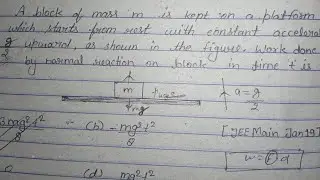 A block of mass m is kept on a platform
which starts from rest with constant accelera
g/2 upward, as shown in the figure. Work done
by normal reaction on block in time t is
m
a = g/2
mg
3mg²t²/8 (b) -mg²t²/8 [JEE Main Jan 19]
(d) mg²t²